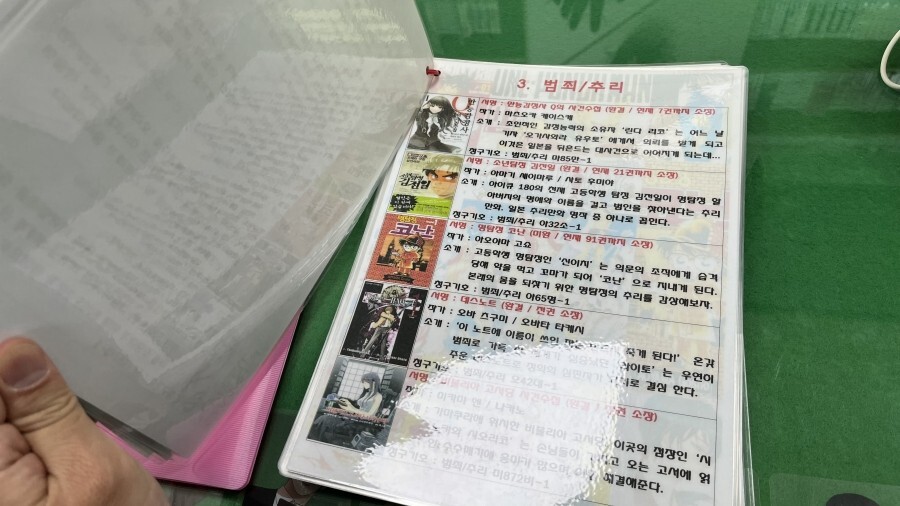 3. 범죄/추리
서명 : 만능감정사 Q의 사건수첩 (완결 / 현재 7권까지 소장)
작가 : 마츠오카 케이스케
소개 : 초인적인 감정능력의 소유자 '린다 리코' 는 어느 날
기자 '오가사와라 유우토' 에게서 의뢰를 받게 되고
이것은 일본을 뒤흔드는 대사건으로 이어지게 되는데...
청구기호 : 범죄/추리 마85만-1
서명 : 소년탐정 김전일 (완결 / 현재 21권까지 소장)
작가 : 아마기 세이마루 / 사토 후미야
소개 : 아이큐 180의 천재 고등학생 탐정 김전일이 명탐정 할
아버지의 명예와 이름을 걸고 범인을 찾아낸다는 추리
만화. 일본 추리만화 명작 중 하나로 꼽힌다.
청구기호 : 범죄/추리 아32소-1
서명 : 명탐정 코난 (미완 / 현재 91권까지 소장)
작가 : 아오야마 고쇼
소개 : 고등학생 명탐정인 '신이치' 는 의문의 조직에게 습격
당해 약을 먹고 꼬마가 되어 '코난' 으로 지내게 된다.
본래의 몸을 되찾기 위한 명탐정의 추리를 감상해보자.
청구기호 : 범죄/추리 아65명-1
명탐정
코난
서명 : 데스노트 (완결 / 전권 소장)
작가 : 오바 츠구미 / 오바타 타케시
소개 : '이 노트에 이름이 쓰인 죽게 된다!' 온갖
범죄로 가득 는 우연히
주운 로 결심 한다.
청구기호 : 범죄/추리 오42데-1
서명 : 비블리아 고서당 사건수첩 (완결 / 전권 소장)
작가 : 미카미 엔 / 나카노
소개 : 가마쿠라에 위치한 비블리아 고서당 이곳의 점장인 '시
오리코' 는 손님들이 고 오는 고서에 얽
해결해준다.
청구기호 : 범죄/추리 미872비-1